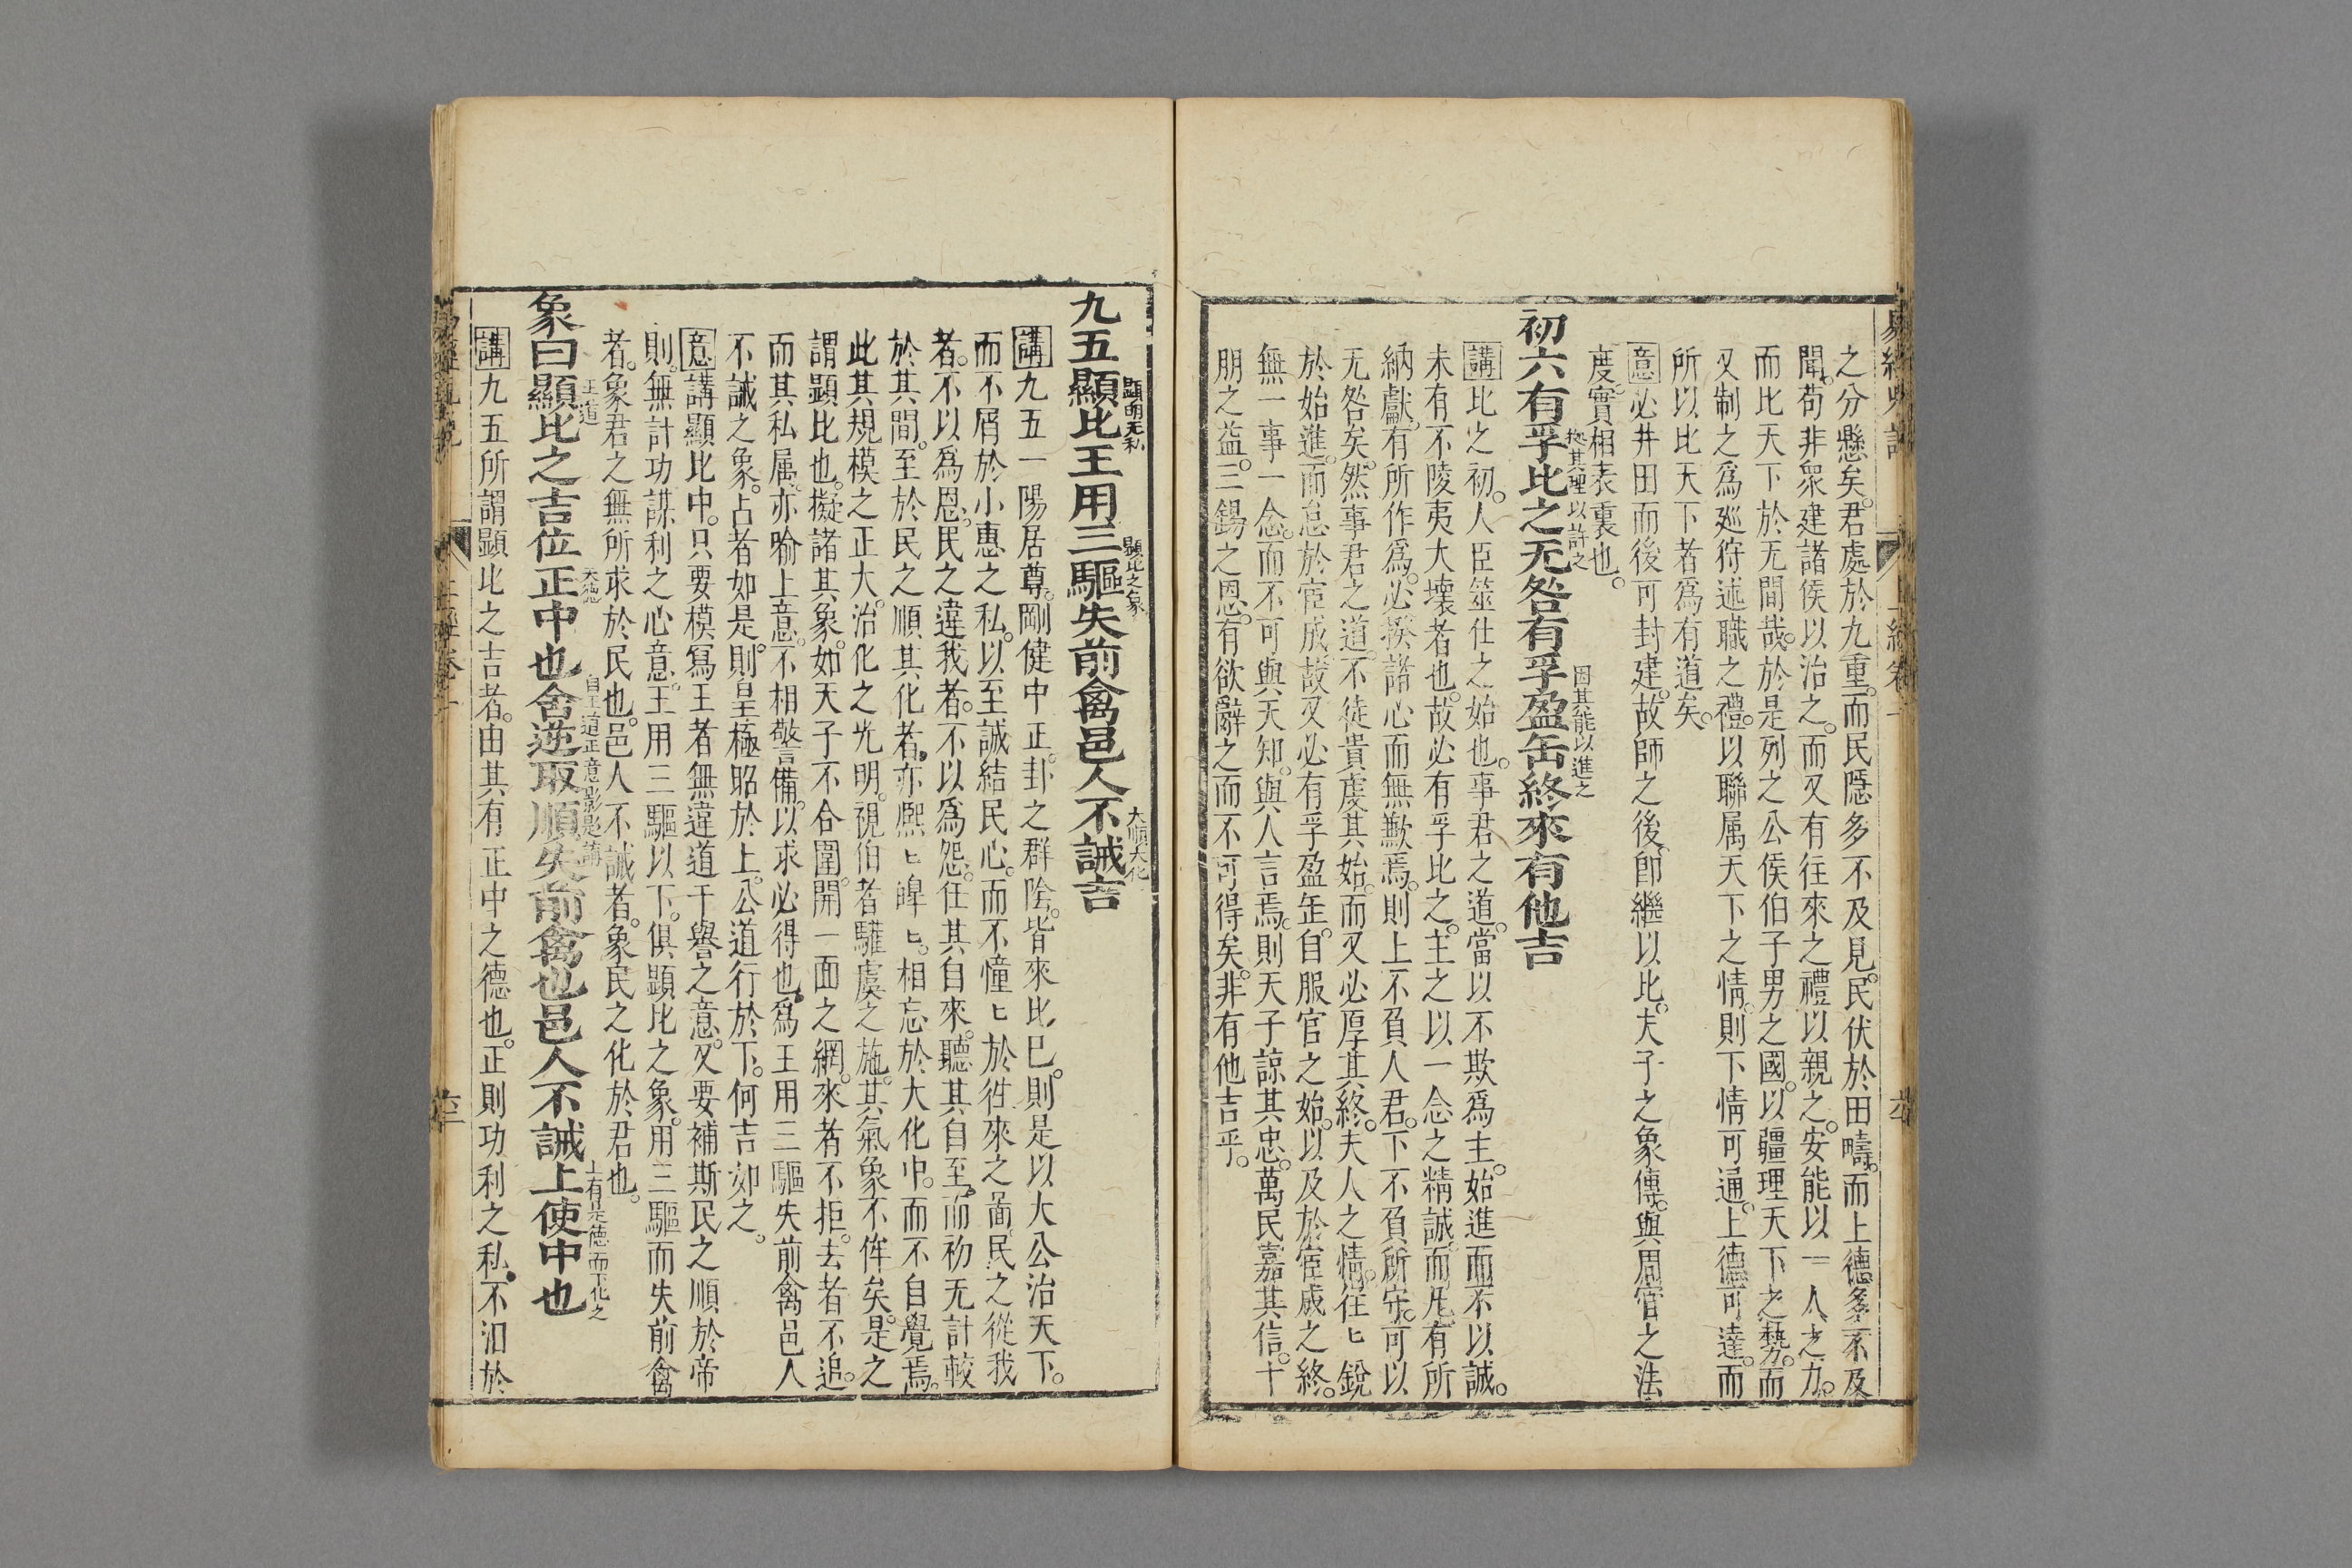 之分懸矣。君處於九重。而民隱多不及見。民伏於田疇。而上德多不及
聞。苟非衆建諸侯以治之。而又有往來之禮以親之。安能以一人之力。
而比天下於无間哉。於是列之公侯伯子男之國。以疆理天下之勢。而
又制之爲廵狩述職之禮。以聯属天下之情。則下情可通。上德可達。而
所以比天下者爲有道矣。
意必井田而後可封建。故師之後。卽繼以比。大子之象傳。與周官之法
度。實相表裏也。
初六有孚比之无咎有孚盈缶終來有他吉
按其理以許之
因其能以進之
講比之初。人臣筮仕之始也。事君之道。當以不欺爲主。始進而不以誠。
未有不陵夷大壞者也。故必有孚比之。主之以一念之精誠。而凡有所
納獻。有所作爲。必揆諸心而無歉焉。則上不負人君。下不負所守。可以
无咎矣。然事君之道。不徒貴虔其始。而又必厚其終。夫人之情。往〻銳
於始進。而怠於宦成。故又必有孚盈缶。自服官之始。以及於宦成之終。
無一事一念。而不可與天知。與人言焉。則天子諒其忠。萬民嘉其信。十
朋之益。三錫之恩。有欲辭之而不可得矣。非有他吉乎。
九五顯比王用三驅失前禽邑人不誡吉
顯明无私
顯比之象
大順大化
講九五一陽居尊。剛健中正。卦之群陰。皆來比巳。則是以大公治天下。
而不屑於小惠之私。以至誠結民心。而不憧〻於徃來之啚。民之從我
者。不以爲恩。民之違我者。不以爲怨。任其自來。聽其自至。而初无計較
於其間。至於民之順其化者。亦熈〻皡〻。相忘於大化中。而不自覺焉。
此其規模之正大。治化之光明。視伯者驩虞之施。其氣象不侔矣。是之
謂顯比也。擬諸其象。如天子不合圍。開一面之網。來者不拒。去者不追。
而其私属。亦喻上意。不相警備。以求必得也。爲王用三驅失前禽邑人
不誡之象。占者如是。則皇極昭於上。公道行於下。何吉如之。
意講顯比中。只要模寫王者無違道干譽之意。又要補斯民之順於帝
則。無計功謀利之心意。王用三驅以下。俱顯比之象。用三驅而失前禽
者。象君之無所求於民也。邑人不誡者。象民之化於君也。
象曰顯比之吉位正中也舍逆取順失前禽也邑人不誡上使中也
王道
天德
上有是德而下化之
講九五所謂顯比之吉者。由其有正中之德也。正則功利之私。不汨於